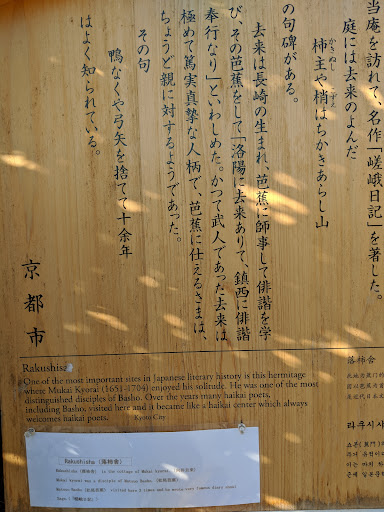 当庵を訪れて、名作「嵯峨日記」を著した。
庭には去来のよんだ
柿主や梢はちかきあらし山
の句碑がある。
去来は長崎の生まれ、芭蕉に師事して俳諧を学
び、その芭蕉をして「洛陽に去来ありて、鎮西に俳諧
奉行なり」といわしめた。かつて武人であった去来は
極めて篤実真摯な人柄で、芭蕉に仕えるさまは、
ちょうど親に対するようであった。
その句
鴨なくや弓矢を捨てて十余年
はよく知られている。
京都市
Rakushisha
One of the most important sites in Japanese literary history is this hermitage
where Mukai Kyorai (1651-1704) enjoyed his solitude. He was one of the most
distinguished disciples of Basho. Over the years many haikai poets,
including Basho, visited here and it became like a haikai center which always
welcomes haikai poets. Kyoto City
落柿舍
라쿠시샤
Rakushisha (落柿舎)
Rakushisha (落柿舎) is the cottage of Mukai Kyorai (向井去来)
Mukai Kyorai was a disciple of Matsuo Basho (松尾芭蕉)
Matsuo Basho (松尾芭蕉) visited here 3 times and he wrote very famous diary novel
Saga (「嵯峨日記」)